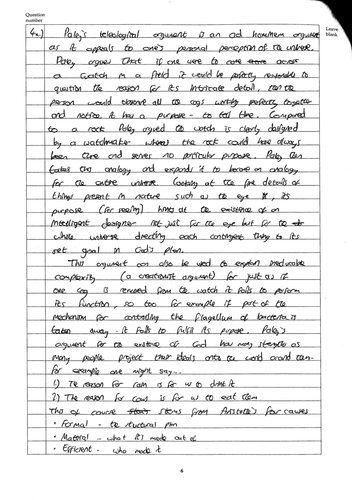 Question
number
Leave
blank
4a)
Paley's teleological argument is an ad hominem argument
as it appeals to one's personal perception of the universe.
Paley argues that if one were to come across
a watch in a field it would be perfectly reasonable to
question the reason for its intricate detail, the
person would observe all the cogs working perfectly together
and notice it has a purpose - to tell time. Compared
to a rock Paley argued the watch is clearly designed
by a watchmaker whereas the rock could have always
been there and serves no particular purpose. Paley then
takes this analogy and expands it to become an analogy
for the entire universe. Looking at the fine details of
things present in nature such as the eye, its
purpose (for seeing) hints at the existence of an
Intelligent designer not just for the eye but for the
whole universe directing each contingent thing to its
set goal in God's plan.
This argument can also be used to explain irreducible
complexity (a creationist argument) for just as if
one cog is removed from the watch it fails to perform
its function, so too for example if part of the
mechanism for controlling the flagellum of bacteria is
taken away - it fails to fulfil its purpose. Paley's
argument for the existence of God has many strengths as
many people project their ideals onto the world around them -
for example one might say...
1) The reason for rain is for us to drink it
2) The reason for cows is for us to eat them
This of course stems from Aristotle's four causes
• Formal - the structural plan
• Material - what it's made out of
• Efficient - who made it
6